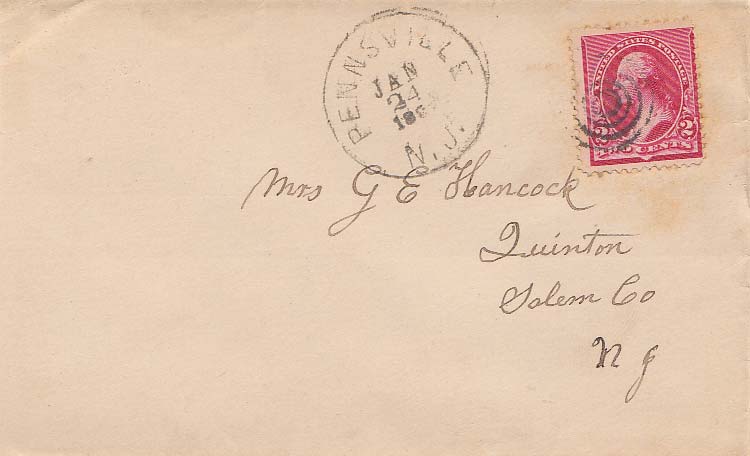 PENNSVILLE
JAN
24
N.J.
UNITED STATES POSTAGE
2 CENTS 2
Mrs G E Hancock
Quinton
Salem Co
N J